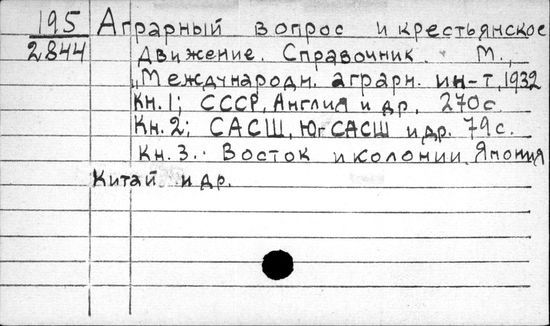 195 Аграрный вопрос и крестьянское
2844 движение. Справочник. М.,
„Международн. аграрн. ин-т, 1932
Кн. 1; СССР, Англия и др, 270 с.
Кн. 2; САСШ, Юг САСШ и др. 79 с.
Кн. 3. Восток и колонии, Япония
Китай и др.